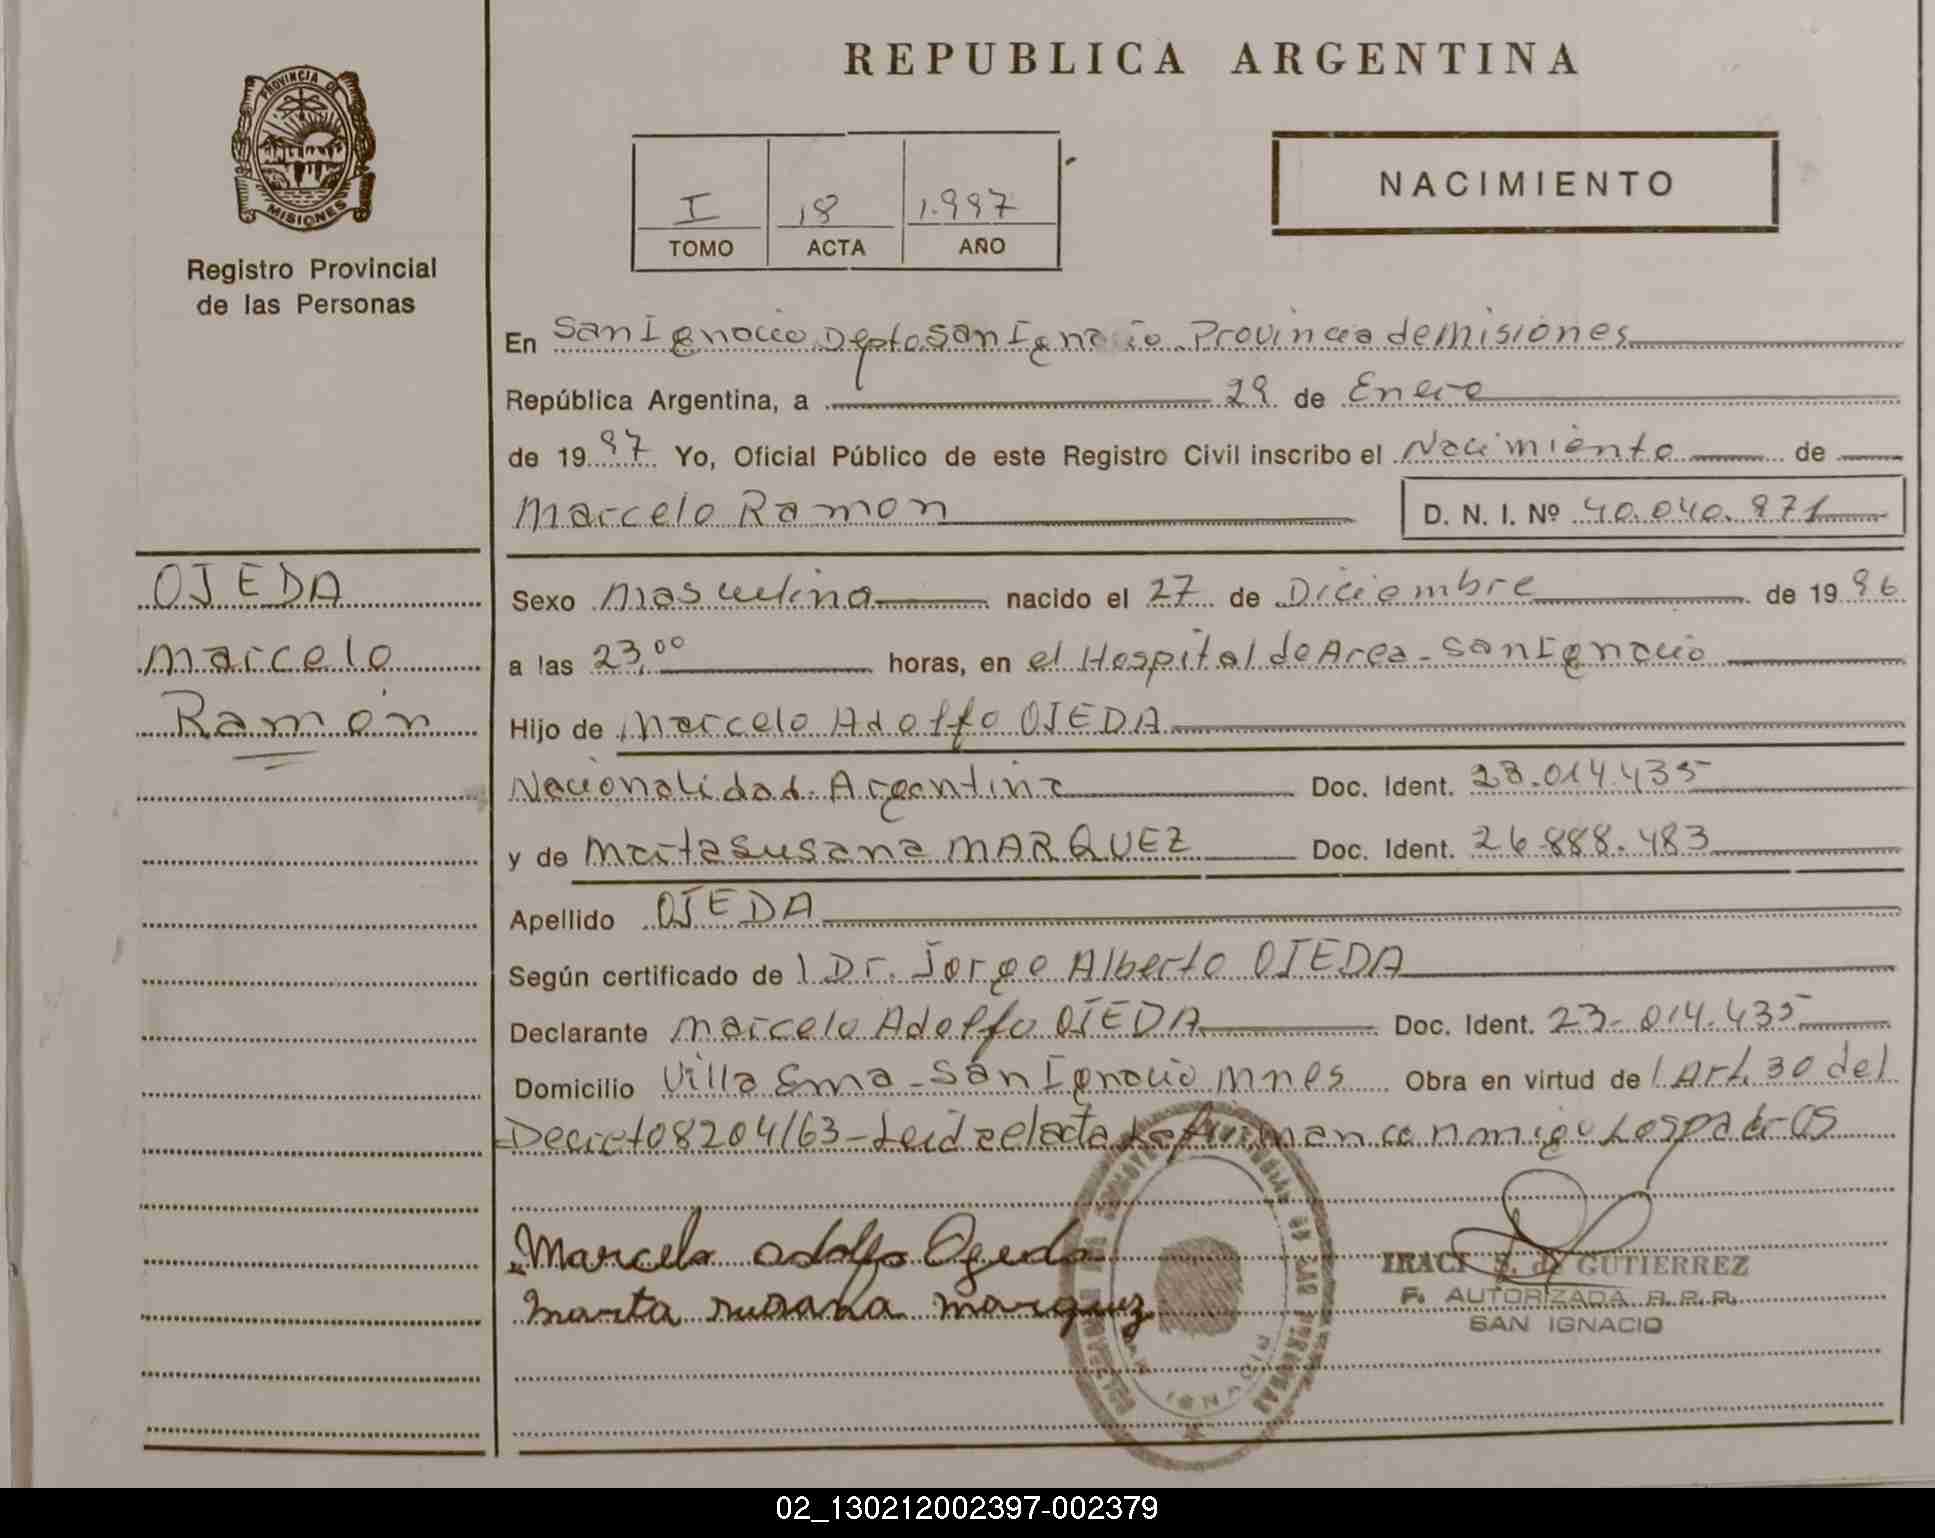 REPUBLICA ARGENTINA
PROVINCIA DE
MISIONES
Registro Provincial
de las Personas
I 18 1.997
TOMO ACTA AÑO
NACIMIENTO
En San Ignacio Depto San Ignacio Provincia de Misiones
República Argentina, a 29 de Enero
de 1997 Yo, Oficial Público de este Registro Civil inscribo el Nacimiento de
Marcelo Ramon D. N. I. Nº 40.040.971
OJEDA
Marcelo
Ramón
Sexo Masculino nacido el 27 de Diciembre de 1996
a las 23,00 horas, en el Hospital de Area - San Ignacio
Hijo de Marcelo Adolfo OJEDA
Nacionalidad Argentina Doc. Ident. 23.014.435
y de Marta Susana MARQUEZ Doc. Ident. 26.888.483
Apellido OJEDA
Según certificado de l Dr. Jorge Alberto OJEDA
Declarante Marcelo Adolfo OJEDA Doc. Ident. 23.014.435
Domicilio Villa Ema - San Ignacio Mnes Obra en virtud de l Art. 30 del
Decreto 8204/63 - Leida el acta La firman conmigo Los padres
Marcelo adolfo Ojeda
marta susana marquez
IRACI S. de GUTIERREZ
F. AUTORIZADA R.P.P.
SAN IGNACIO
SAN IGNACIO
02_130212002397-002379